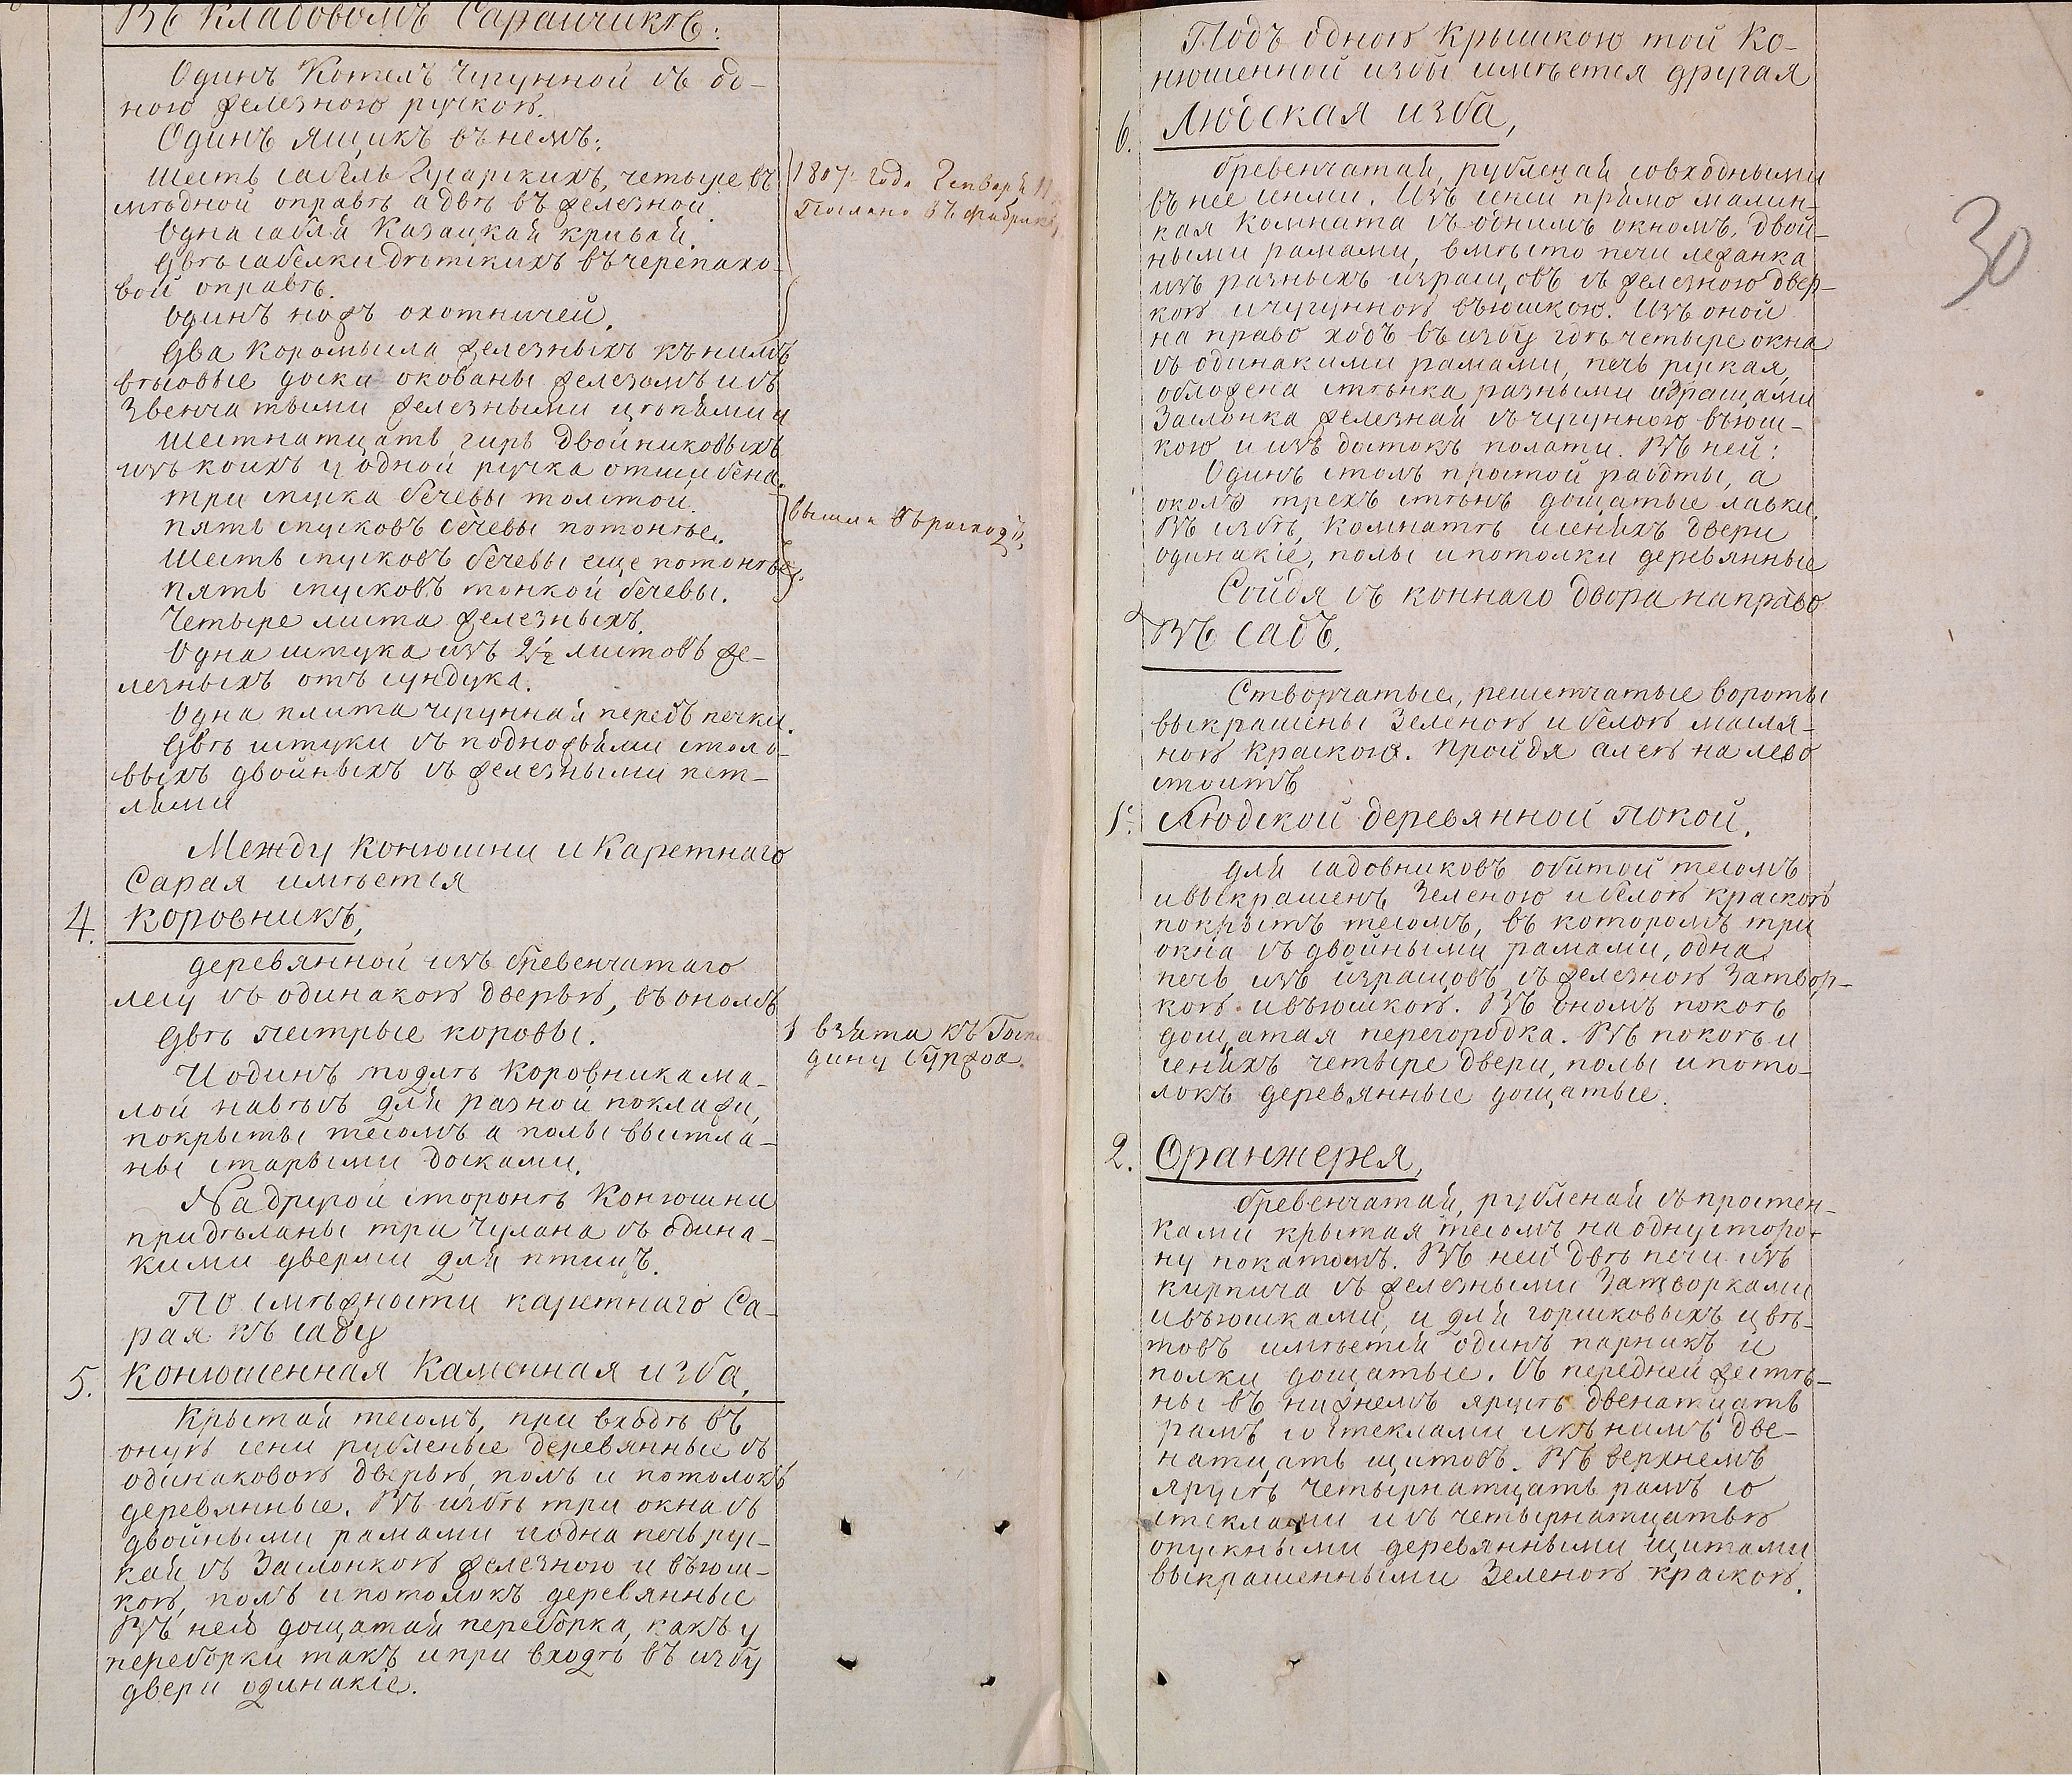 Въ кладовомъ Сарайчикѣ:
Одинъ Котелъ чугунной съ од-
ною железною ручкою.
Одинъ ящикъ въ немъ:
Шесть сабель Гусарскихъ, четыре въ
мѣдной оправѣ а двѣ въ железной.
Одна сабля Казацкая кривая.
Двѣ сабелки дѣтскихъ въ черепахо-
вой оправѣ.
Одинъ ножъ охотничей.
Два коромысла железныхъ къ нимъ
вѣсовые доски окованы железомъ и съ
Звенчатыми железными цѣпями и
Шестнатцать гирь двойниковыхъ
изъ коихъ у одной ручка отшибена.
три пуска бечевы толстой.
пять пусковъ бечевы потонѣе.
Шесть пусковъ бечевы еще потонѣе.
пять пусковъ тонкой бечевы.
Четыре листа железныхъ.
Одна штука изъ 2½ листовъ же-
лезныхъ отъ сундука.
Одна плита чугунная передъ печки.
Двѣ штуки съ подножьями столо-
выхъ двойныхъ съ железными пет-
лями
Между конюшни и Каретнаго
Сарая имѣется
4. Коровникъ,
деревянной изъ бревенчатаго
лесу съ одинакою дверью, въ ономъ
Двѣ пестрые коровы.
И одинъ подлѣ Коровника ма-
лой навѣсъ для разной поклажи,
покрыты тесомъ а полы выстла-
ны старыми досками.
На другой сторонѣ Конюшни
придѣланы три чулана съ одина-
кими дверями для птицъ.
По смѣжности каретнаго Са-
рая къ саду
5. Конюшенная Каменная изба,
Крытая тесомъ, при входѣ въ
оную сени рубленые деревянные съ
одинаковою дверью, полъ и потолокъ
деревянные. Въ избѣ три окна съ
двойными рамами и одна печь рус-
кая съ Заслонкою железною и вьюш-
кою, полъ и потолокъ деревянные
Въ ней дощатая переборка, какъ у
переборки такъ и при входѣ въ избу
двери одинакіе.
1807 года Генваря
Послано въ фабрику
вышли въ расходъ.
1 взята къ Госпо
дину
Подъ одною крышкою той Ко-
нюшенной избы имѣется другая
6. Людская изба,
бревенчатая, рубленая совходными
въ нее сѣнми. Изъ сѣни прямо малин-
кая Комната съ однимъ окномъ, двой-
ными рамами, вмѣсто печи лежанка
изъ разныхъ изращовъ съ железною двер-
кою и чугунною вьюшкою. Изъ оной
на право ходъ въ избу гдѣ четыре окна
съ одинакими рамами, печь руская,
обложена стѣнка разными изращами
Заслонка железная съ чугунною вьюш-
кою и изъ достокъ полати. Въ ней:
Одинъ столъ простой работы, а
около трехъ стѣнъ дощатые лавки.
Въ избѣ, Комнатѣ и сеняхъ двери
одинакіе, полы и потолки деревянные
Сойдя съ коннаго двора направо
Въ садъ.
Створчатые, решетчатые вороты
выкрашены Зеленою и белою масля-
ною краскою. Пройдя алею на лево
стоитъ
1. Людской деревянной покой.
для садовниковъ обитой тесомъ
и выкрашенъ Зеленою и белою краскою
покрытъ тесомъ, въ которомъ три
окна съ двойными рамами, одна
печь изъ изращовъ съ железною Затвор-
кою и вьюшкою. Въ ономъ покоѣ
дощатая перегородка. Въ покоѣ и
сеняхъ четыре двери, полы и пото-
локъ деревянные дощатые.
2. Оранжерея,
бревенчатая, рубленая съ простен-
ками крытая тесомъ на одну сторо-
ну покатомъ. Въ ней двѣ печи изъ
кирпича съ железными Затворками
и вьюшками, и для горшковыхъ цвѣ-
товъ имѣется одинъ парникъ и
полки дощатые. Съ передней же стѣ-
ны въ нижнемъ ярусѣ двенатцать
рамъ со стеклами и къ нимъ две-
натцать щитовъ. Въ верхнемъ
ярусѣ Четырнатцать рамъ со
стеклами и съ четырнатцатью
опускными деревянными щитами
выкрашенными Зеленою краскою.
30